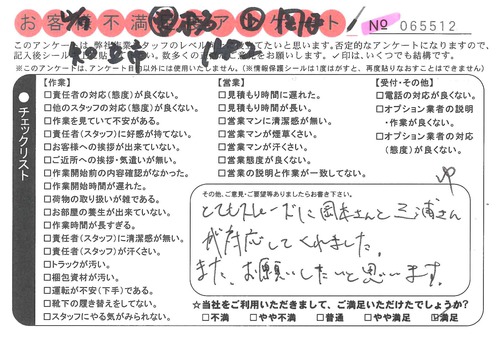 お客様不満 アンケート
No 065512
このアンケートは、弊社
否定的なアンケートになりますので、
※このアンケートは、アンケート目的以外には使用いたしません。(※情報保護シールは1度はがすと、再度貼りなおすことはできません)
チェックリスト
【作業】
□責任者の対応(態度)が良くない。
□他のスタッフの対応(態度)が良くない。
□作業を見ていて不安がある。
□責任者(スタッフ)に好感が持てない。
□お客様への挨拶が出来ていない。
□ご近所への挨拶・気遣いが無い。
□作業開始前の内容確認がなかった。
□作業開始時間が遅れた。
□荷物の取り扱いが雑である。
□お部屋の養生が出来ていない。
□作業時間が長すぎる。
□責任者(スタッフ)に清潔感が無い。
□責任者(スタッフ)が汗くさい。
□トラックが汚い。
□梱包資材が汚い。
□運転が不安(下手)である。
□靴下の履き替えをしてない。
□スタッフにやる気がみられない。
【営業】
□見積もり時間に遅れた。
□見積もり時間が長い。
□営業マンに清潔感が無い。
□営業マンが煙草くさい。
□営業マンが汗くさい。
□営業態度が良くない。
□営業の説明と作業が一致してない。
【受付・その他】
□電話の対応が良くない。
□オプション業者の説明
・作業が良くない。
□オプション業者の対応
(態度)が良くない。
その他、ご意見・ご要望等ありましたらお書き下さい。
とてもスムーズに岡本さんと三浦さん
が対応してくれました。
また、お願いしたいと思います。
☆当社をご利用いただきまして、ご満足いただけたでしょうか?
□不満 □やや不満 □普通 □やや満足 ☑満足